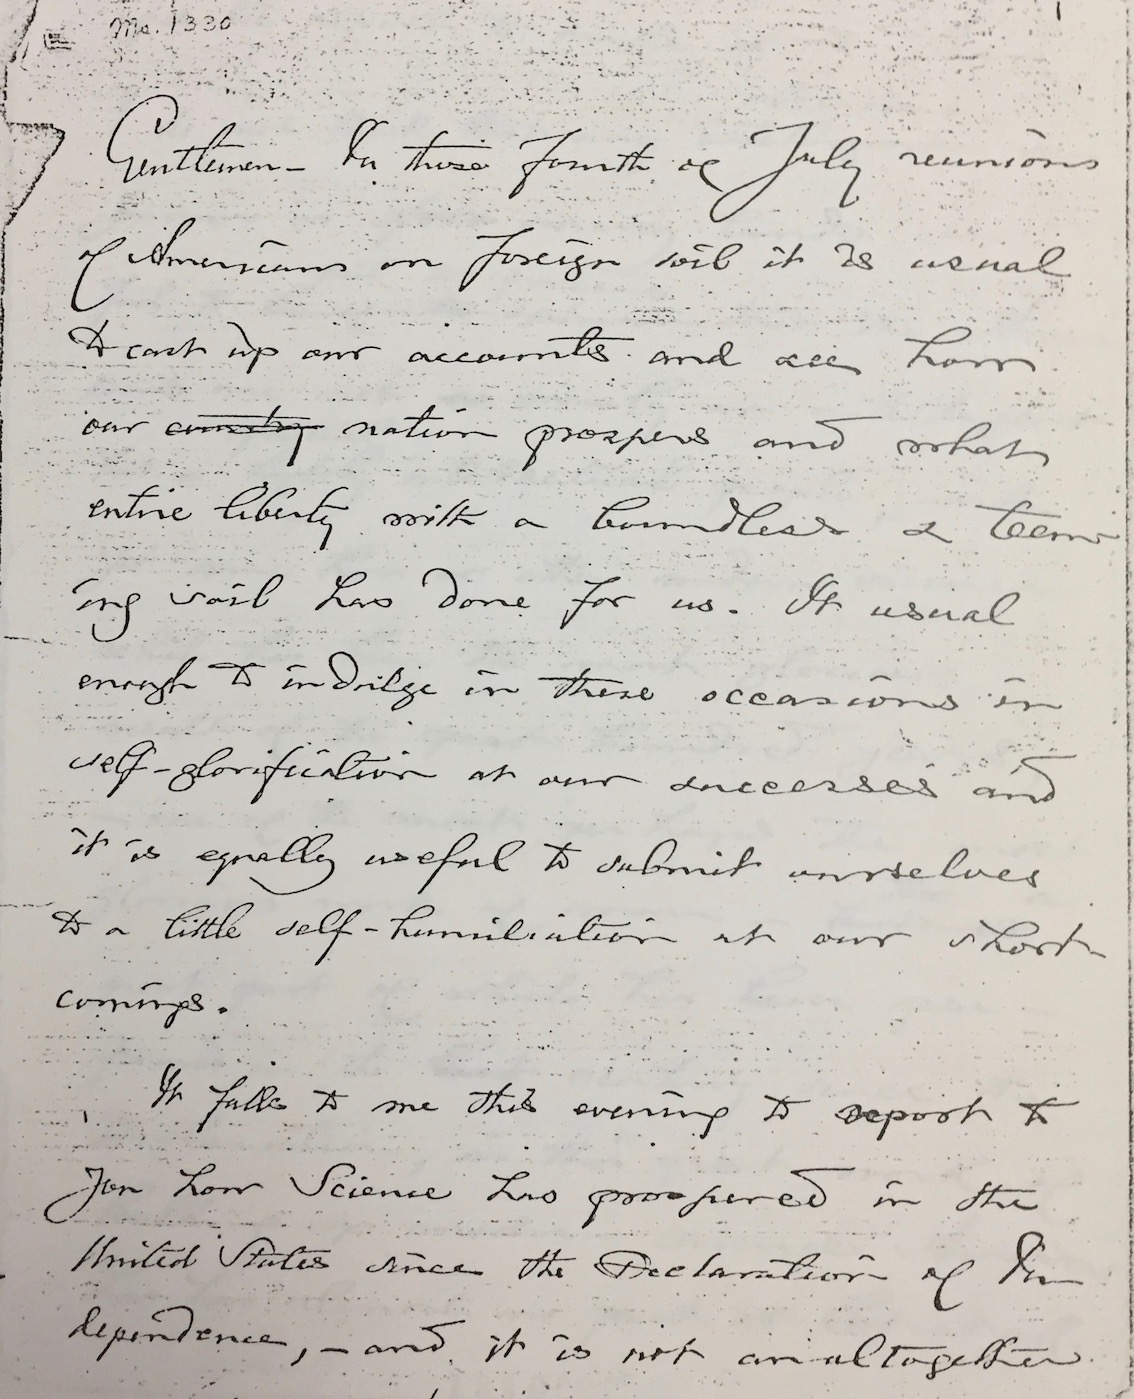 Ms. 1330
1
Gentlemen – In these Fourth of July reunions
of Americans on foreign soil it is usual
to cast up our accounts and see how
our country nation prospers and what
entire liberty with a boundless & teem
ing soil has done for us. It usual
enough to indulge in these occasions in
self-glorification at our successes and
it is equally useful to submit ourselves
to a little self-humiliation at our short-
comings.
It falls to me this evening to report to
You how Science has prospered in the
United States since the Declaration of In
dependence, – and it is not an altogether